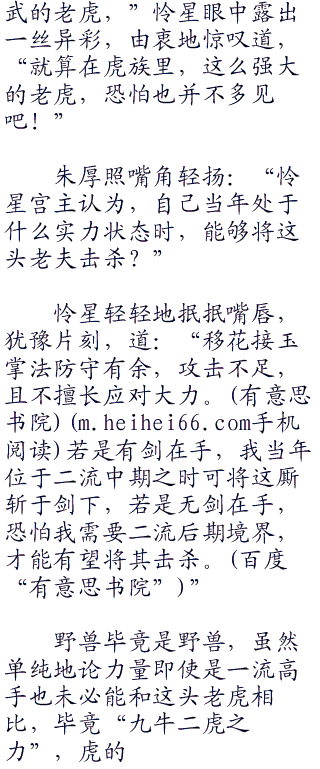 武的老虎，”怜星眼中露出
一丝异彩，由衷地惊叹道，
“就算在虎族里，这么强大
的老虎，恐怕也并不多见
吧！”
朱厚照嘴角轻扬：“怜
星宫主认为，自己当年处于
什么实力状态时，能够将这
头老夫击杀？”
怜星轻轻地抿抿嘴唇，
犹豫片刻，道：“移花接玉
掌法防守有余，攻击不足，
且不擅长应对大力。(有意思
书院)(m.heihei66.com手机
阅读)若是有剑在手，我当年
位于二流中期之时可将这厮
斩于剑下，若是无剑在手，
恐怕我需要二流后期境界，
才能有望将其击杀。(百度
“有意思书院”)”
野兽毕竟是野兽，虽然
单纯地论力量即使是一流高
手也未必能和这头老虎相
比，毕竟“九牛二虎之
力”，虎的